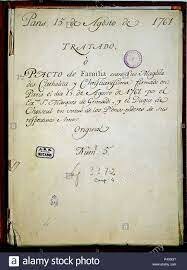 Paris 15 de Agosto de 1761
TRATADO,
ò
PACTO de Familia entre sus Magdes
Catholica y Christianissima firmado en
Paris el dia 15 de Agosto de 1761 por el
Exmo Sr Marques de Grimaldi, y el Duque de
Choiseul en virtud de los Plenos-poderes de sus
respectivos Amos.
Original
Num. 5
3372
alamy stock photo